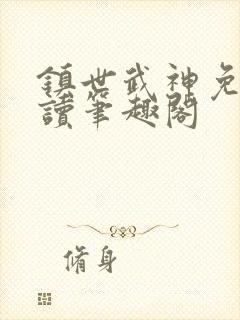 鎮世武神免
讀筆趣閣
脩身